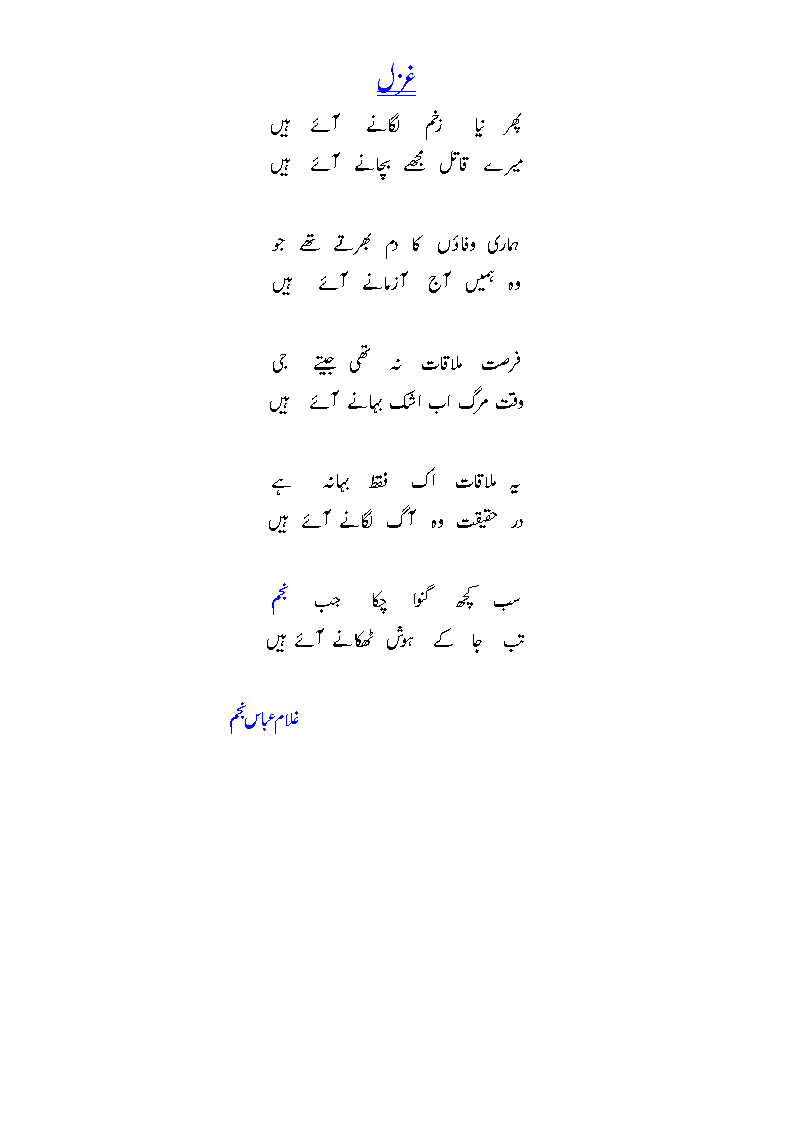 غزل
پھر نیا زخم لگانے آئے ہیں
میرے قاتل مجھے بچانے آئے ہیں
ہماری وفاؤں کا دم بھرتے تھے جو
وہ ہمیں آج آزمانے آئے ہیں
فرصت ملاقات نہ تھی جیتے جی
وقت مرگ اب اشک بہانے آئے ہیں
یہ ملاقات اک فقط بہانہ ہے
در حقیقت وہ آگ لگانے آئے ہیں
سب کچھ گنوا چکا جب نجم
تب جا کے ہوش ٹھکانے آئے ہیں
غلام عباس نجم